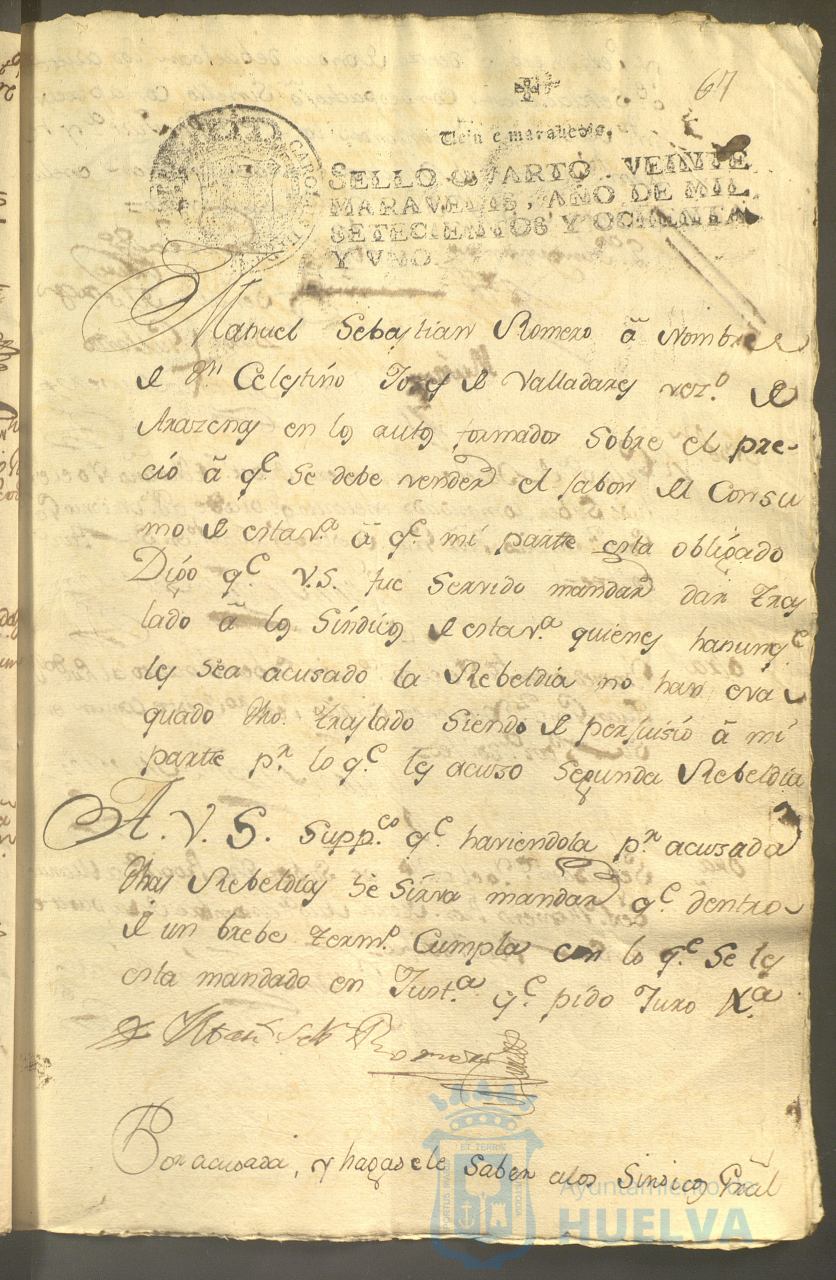 67
Veinte maravedis.
SELLO QVARTO, VEINTE
MARAVEDIS, AÑO DE MIL
SETECIENTOS Y OCHENTA
Y VNO.
CAROL
Manuel Sebastian Romero â Nombre
de Dn Celestino Josef de Valladares vezo de
Arazena en los autos formados sobre el pre-
cio â qe se debe vender el jabon del Consu
mo de esta va â qe mi parte esta obligado
Digo qe V.S. fue servido mandar dar tras
lado â los Sindicos de esta va quienes haunqe
les sea acusado la Rebeldia no han eva
quado dho. traslado siendo de perjuisio â mi
parte pr lo qe les acuso segunda Rebeldia
A. V. S. Suppco qe haviendola pr acusada
dhas Rebeldias se sirva mandar qe dentro
de un brebe termo Cumpla con lo qe se les
esta mandado en Justa qe pido Juro Xa
Man Seb Romero
Por acusada, y hagasele saber alos Sindicos Gral
Ayuntamiento de
HUELVA